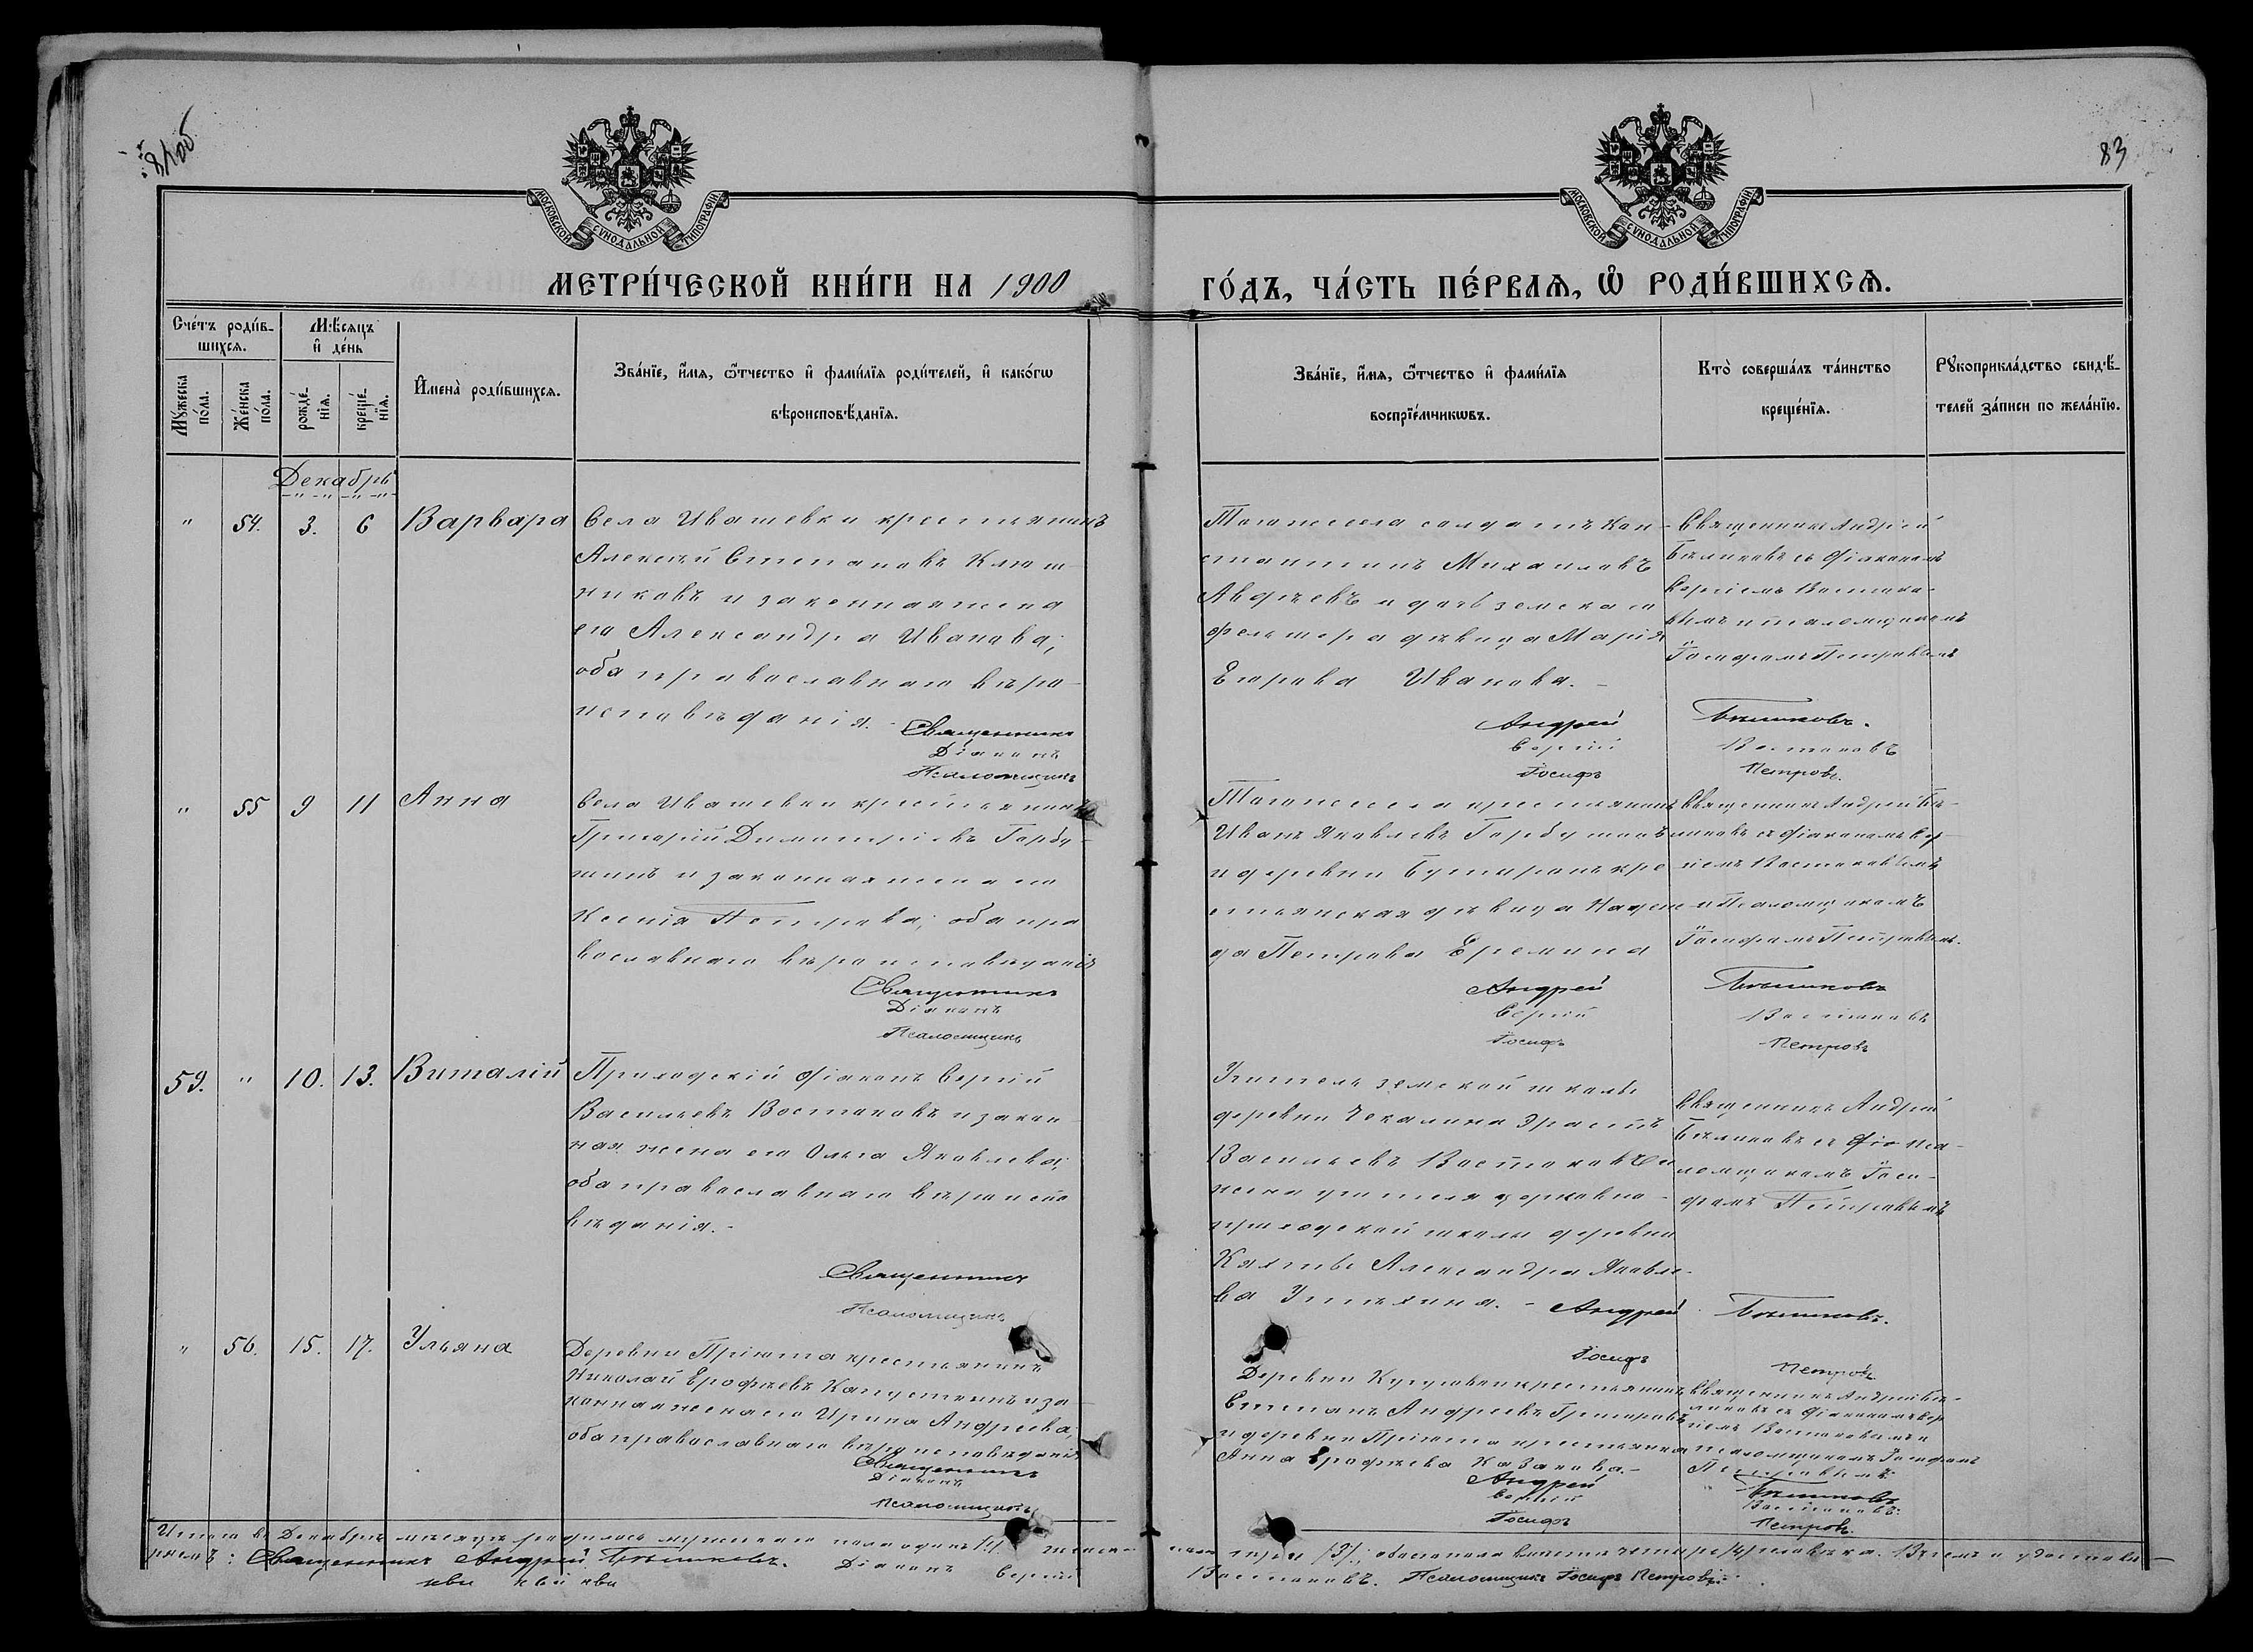 81об
83
МОСКОВСКОЙ СѴНОДАЛЬНОЙ ТИПОГРАФІИ
МОСКОВСКОЙ СѴНОДАЛЬНОЙ ТИПОГРАФІИ
МЕТРИ́ЧЕСКОЙ КНИ́ГИ НА 1900
ГО́ДЪ, ЧА́СТЬ ПЕ́РВАѦ, Ѽ РОДИ́ВШИХСѦ.
Сче́тъ роди́в-
шихсѧ.
Мѣ́сяцъ
и҆ де́нь
Мꙋ́жеска
по́ла.
Же́нска
по́ла.
рожде́-
нїѧ.
креще́-
нїѧ.
И҆мена̀ роди́вшихсѧ.
Зва́нїе, и҆́мѧ, ѻ҆́тчество и҆ фами́лїѧ роди́телей, и҆ како́гѡ
вѣроисповѣ́данїѧ.
Зва́нїе, и҆́мѧ, ѻ҆́тчество и҆ фами́лїѧ
воспрїе́мникѡвъ.
Кто̀ соверша́лъ та́инство
креще́нїѧ.
Рꙋкоприкла́дство свидѣ́-
телей за́писи по жела́нїю.
Декабрь
" 54. 3. 6 Варвара
Села Ивашевки крестьянинъ
Алексѣй Степановъ Ключ-
никовъ и законная жена
его Александра Иванова;
оба православнаго вѣро-
исповѣданія. -
Священникъ
Діаконъ
Псаломщикъ
Тогоже села солдатъ Кон-
стантинъ Михаиловъ
Авдѣевъ и дочь земскаго
фельшера дѣвица Марія
Егорова Иванова. -
Андрей
Сергій
Іосифъ
Священникъ Андрей
Бѣликовъ съ діакономъ
Сергіемъ Востоко-
вымъ и псаломщикомъ
Іосифомъ Петровымъ
Бѣликовъ.
Востоковъ
Петровъ.
" 55 9 11 Анна
Села Ивашевки крестьянинъ
Григорій Димитріевъ Горбу-
шинъ и законная жена его
Ксенія Петрова; оба пра
вославнаго вѣроисповѣданія
Священникъ
Діаконъ
Псаломщикъ
Тогоже села крестьянинъ
Иванъ Яковлевъ Горбушинъ
и деревни Бутыровъ кре
стьянская дѣвица Надеж
да Петрова Еремина
Андрей
Сергій
Іосифъ
Священникъ Андрей Бѣ-
ликовъ съ діакономъ Сер-
гіемъ Востоковымъ
и Псаломщикомъ
Іосифомъ Петровымъ.
Бѣликовъ
Востоковъ
Петровъ
59. " 10. 13. Виталій
Приходскій діаконъ Сергій
Васильевъ Востоковъ и закон
ная жена его Ольга Яковлева;
оба православнаго вѣроиспо
вѣданія. -
Священникъ
Псаломщикъ
Учитель земской школы
деревни Чекалина Эрастъ
Васильевъ Востоковъ и
жена учителя церковно-
приходской школы деревни
Александра Яковле-
ва Утѣхина. -
Андрей
Іосифъ
Священникъ Андрей
Бѣликовъ съ Пса-
ломщикомъ Іоси-
фомъ Петровымъ
Бѣликовъ.
Петровъ
" 56. 15. 17. Ульяна
Деревни Пріюта крестьянинъ
Николай Ерофѣевъ Капустинъ и за-
конная жена его Ирина Андреева,
оба православнаго вѣроисповѣданія
Священникъ
Діаконъ
Псаломщикъ
Деревни крестьянинъ
Степанъ Андреевъ Григорьевъ
и деревни Пріюта крестьянка
Анна Ерофѣева Казакова. -
Андрей
Сергій
Іосифъ
Священникъ Андрей Бѣ-
ликовъ съ діакономъ Сер
гіемъ Востоковымъ и
псаломщикомъ Іосифомъ
Петровымъ.
Бѣликовъ
Востоковъ.
Петровъ.
Итого въ Декабрѣ мѣсяцѣ родилось мужескаго пола одинъ /1/, женскаго пола три /3/, обоего пола вмѣстѣ четыре /4/ человѣка. Вѣрность удостовѣ-
ряемъ: Священникъ Андрей Бѣликовъ. Діаконъ Сергій Востоковъ. Псаломщикъ Іосифъ Петровъ.